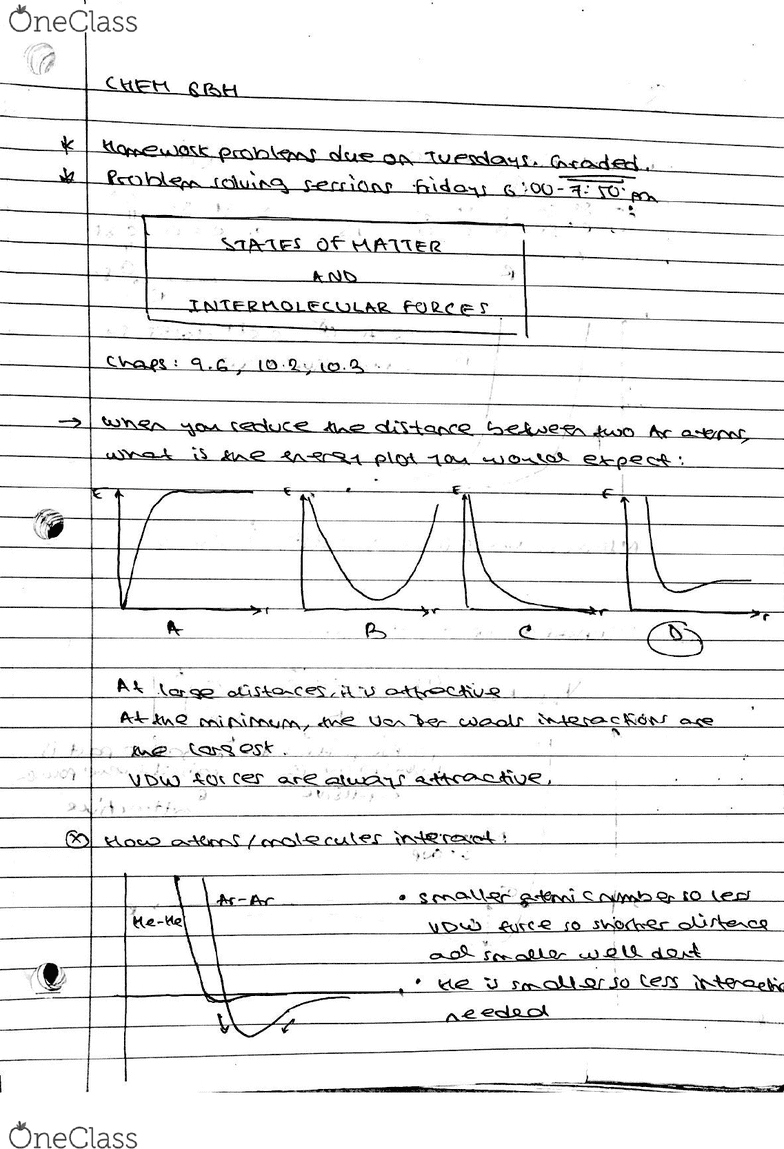 OneClass
CHEM 6BH
* Homework problems due on Tuesdays. Graded.
* Problem solving sessions fridays 6:00-7:50 pm
STATES OF MATTER
AND
INTERMOLECULAR FORCES
Chaps: 9.6, 10.2, 10.3
→ when you reduce the distance between two Ar atoms,
what is the energy plot you would expect:
E E E E
r r r r
A B C D
At large distances, it is attractive
At the minimum, the Van Der Waals interactions are
the largest.
VDW forces are always attractive.
How atoms/molecules interact:
Ar-Ar
He-He
• smaller atomic number so less
VDW force so shorter distance
and smaller well
• He is smaller so less interactio
needed
OneClass